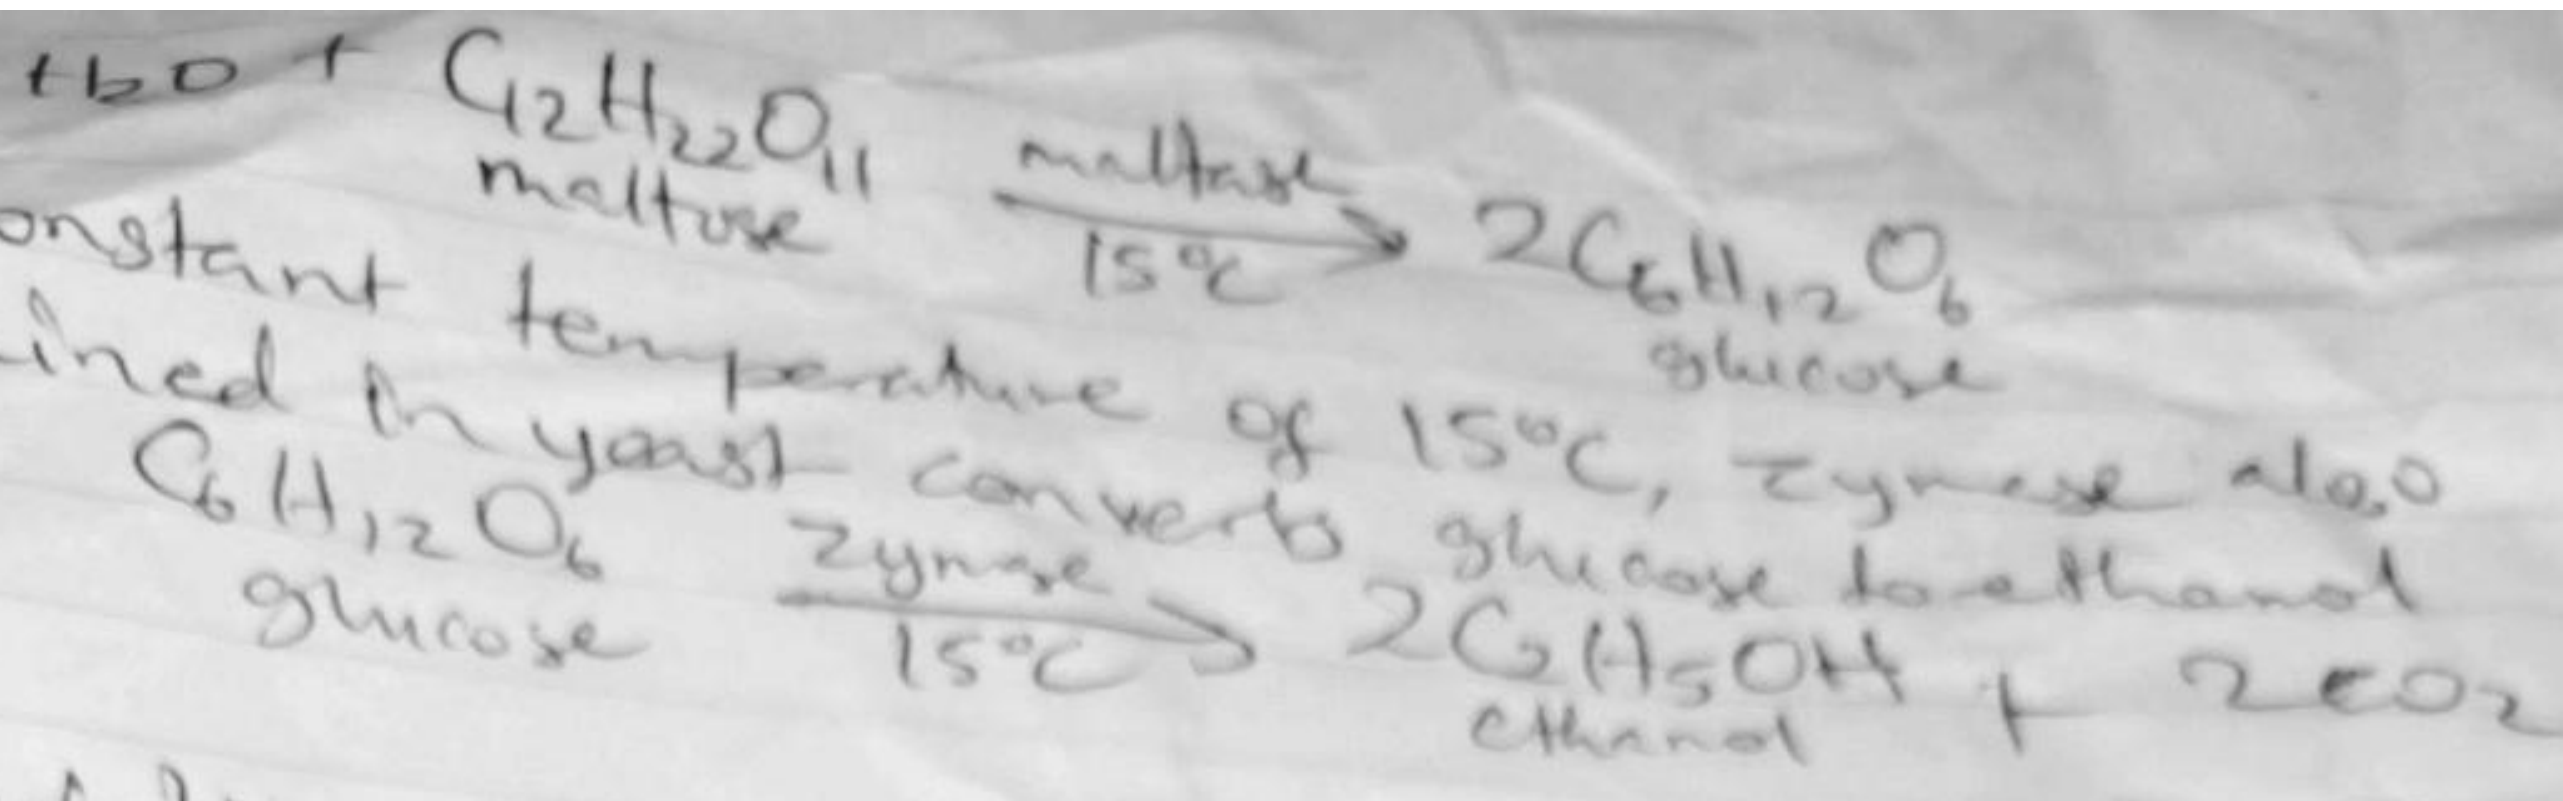 H₂O + C₁₂H₂₂O₁₁ maltase 2C₆H₁₂O₆
maltose 15°C glucose
onstant temperature of 15°C, zymase also
ined in yeast converts glucose to ethanol
C₆H₁₂O₆ zymase 2C₂H₅OH + 2CO₂
glucose 15°C ethanol